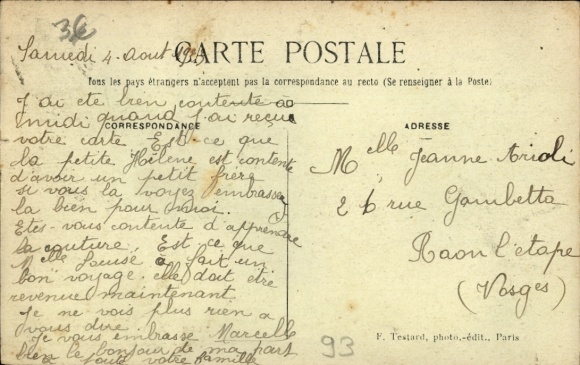 36
Samedi 4 Aout
CARTE POSTALE
Tous les pays étrangers n'acceptent pas la correspondance au recto (Se renseigner à la Poste)
CORRESPONDANCE
J'ai ete bien contente a
midi quand j'ai reçu
votre carte Est-ce que
la petite Hélène est contente
d'avoir un petit frere
si vous la voyez embrassez
la bien pour moi.
Etes-vous contente d'apprendre
la couture. Est ce que
Melle Louise a fait un
bon voyage. elle doit etre
revenue maintenant.
Je ne vois plus rien a
vous dire.
Je vous embrasse Marcelle
bien le bonjour de ma part
a toute votre famille
ADRESSE
Melle Jeanne Arioli
26 rue Gambetta
Raon l'etape
(Vosges)
F. Testard, photo.-édit., Paris
93